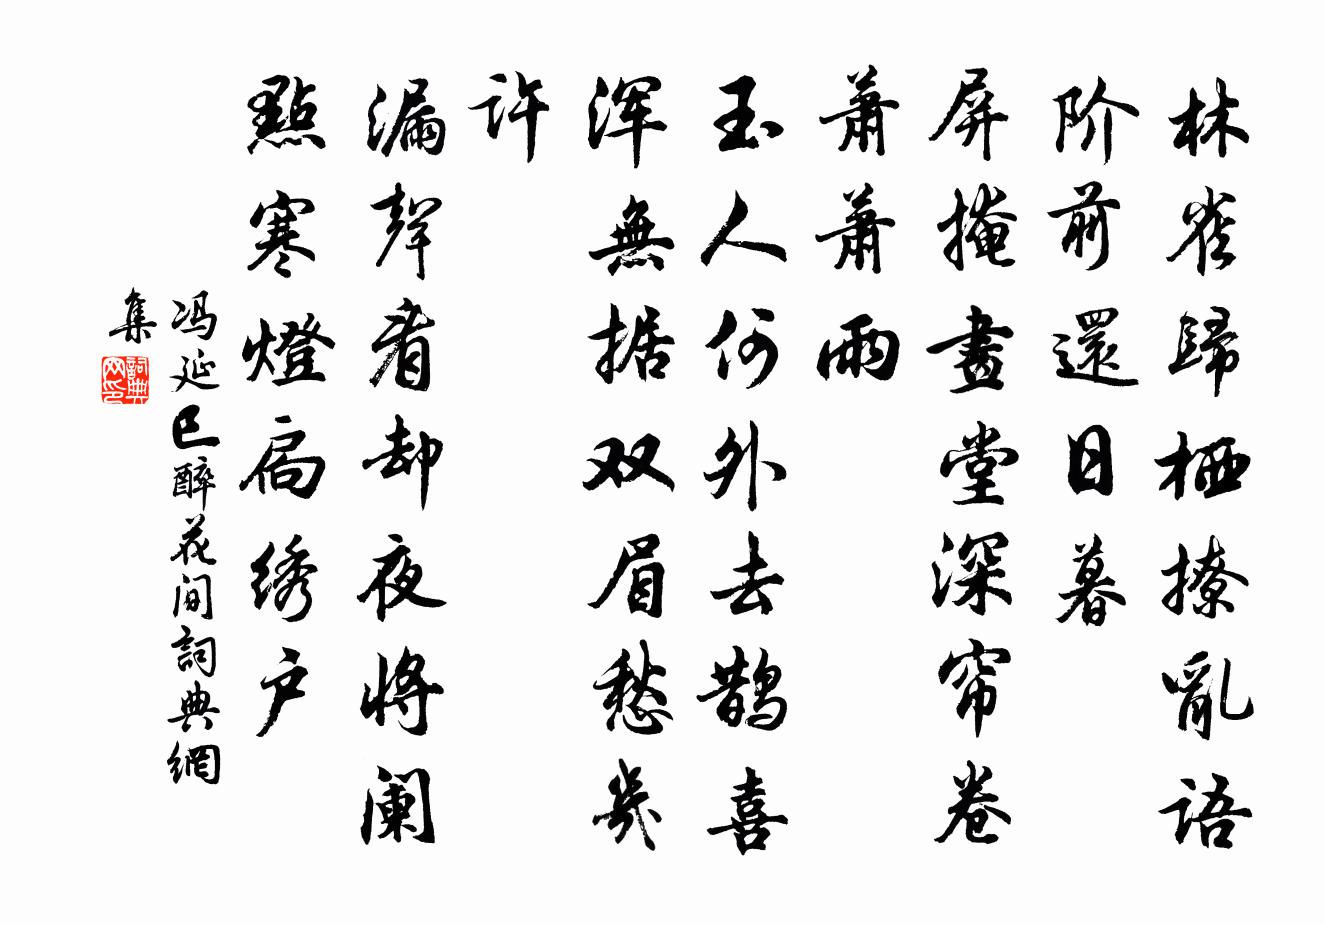 林雀歸栖撩亂語
阶前還日暮
屏掩畫堂深帘卷
蕭蕭雨
玉人何外去鵲喜
浑無据双眉愁幾
許
漏聲看却夜将阑
點寒燈扃绣户
冯延巳醉花间詞典網
集
詞典网印